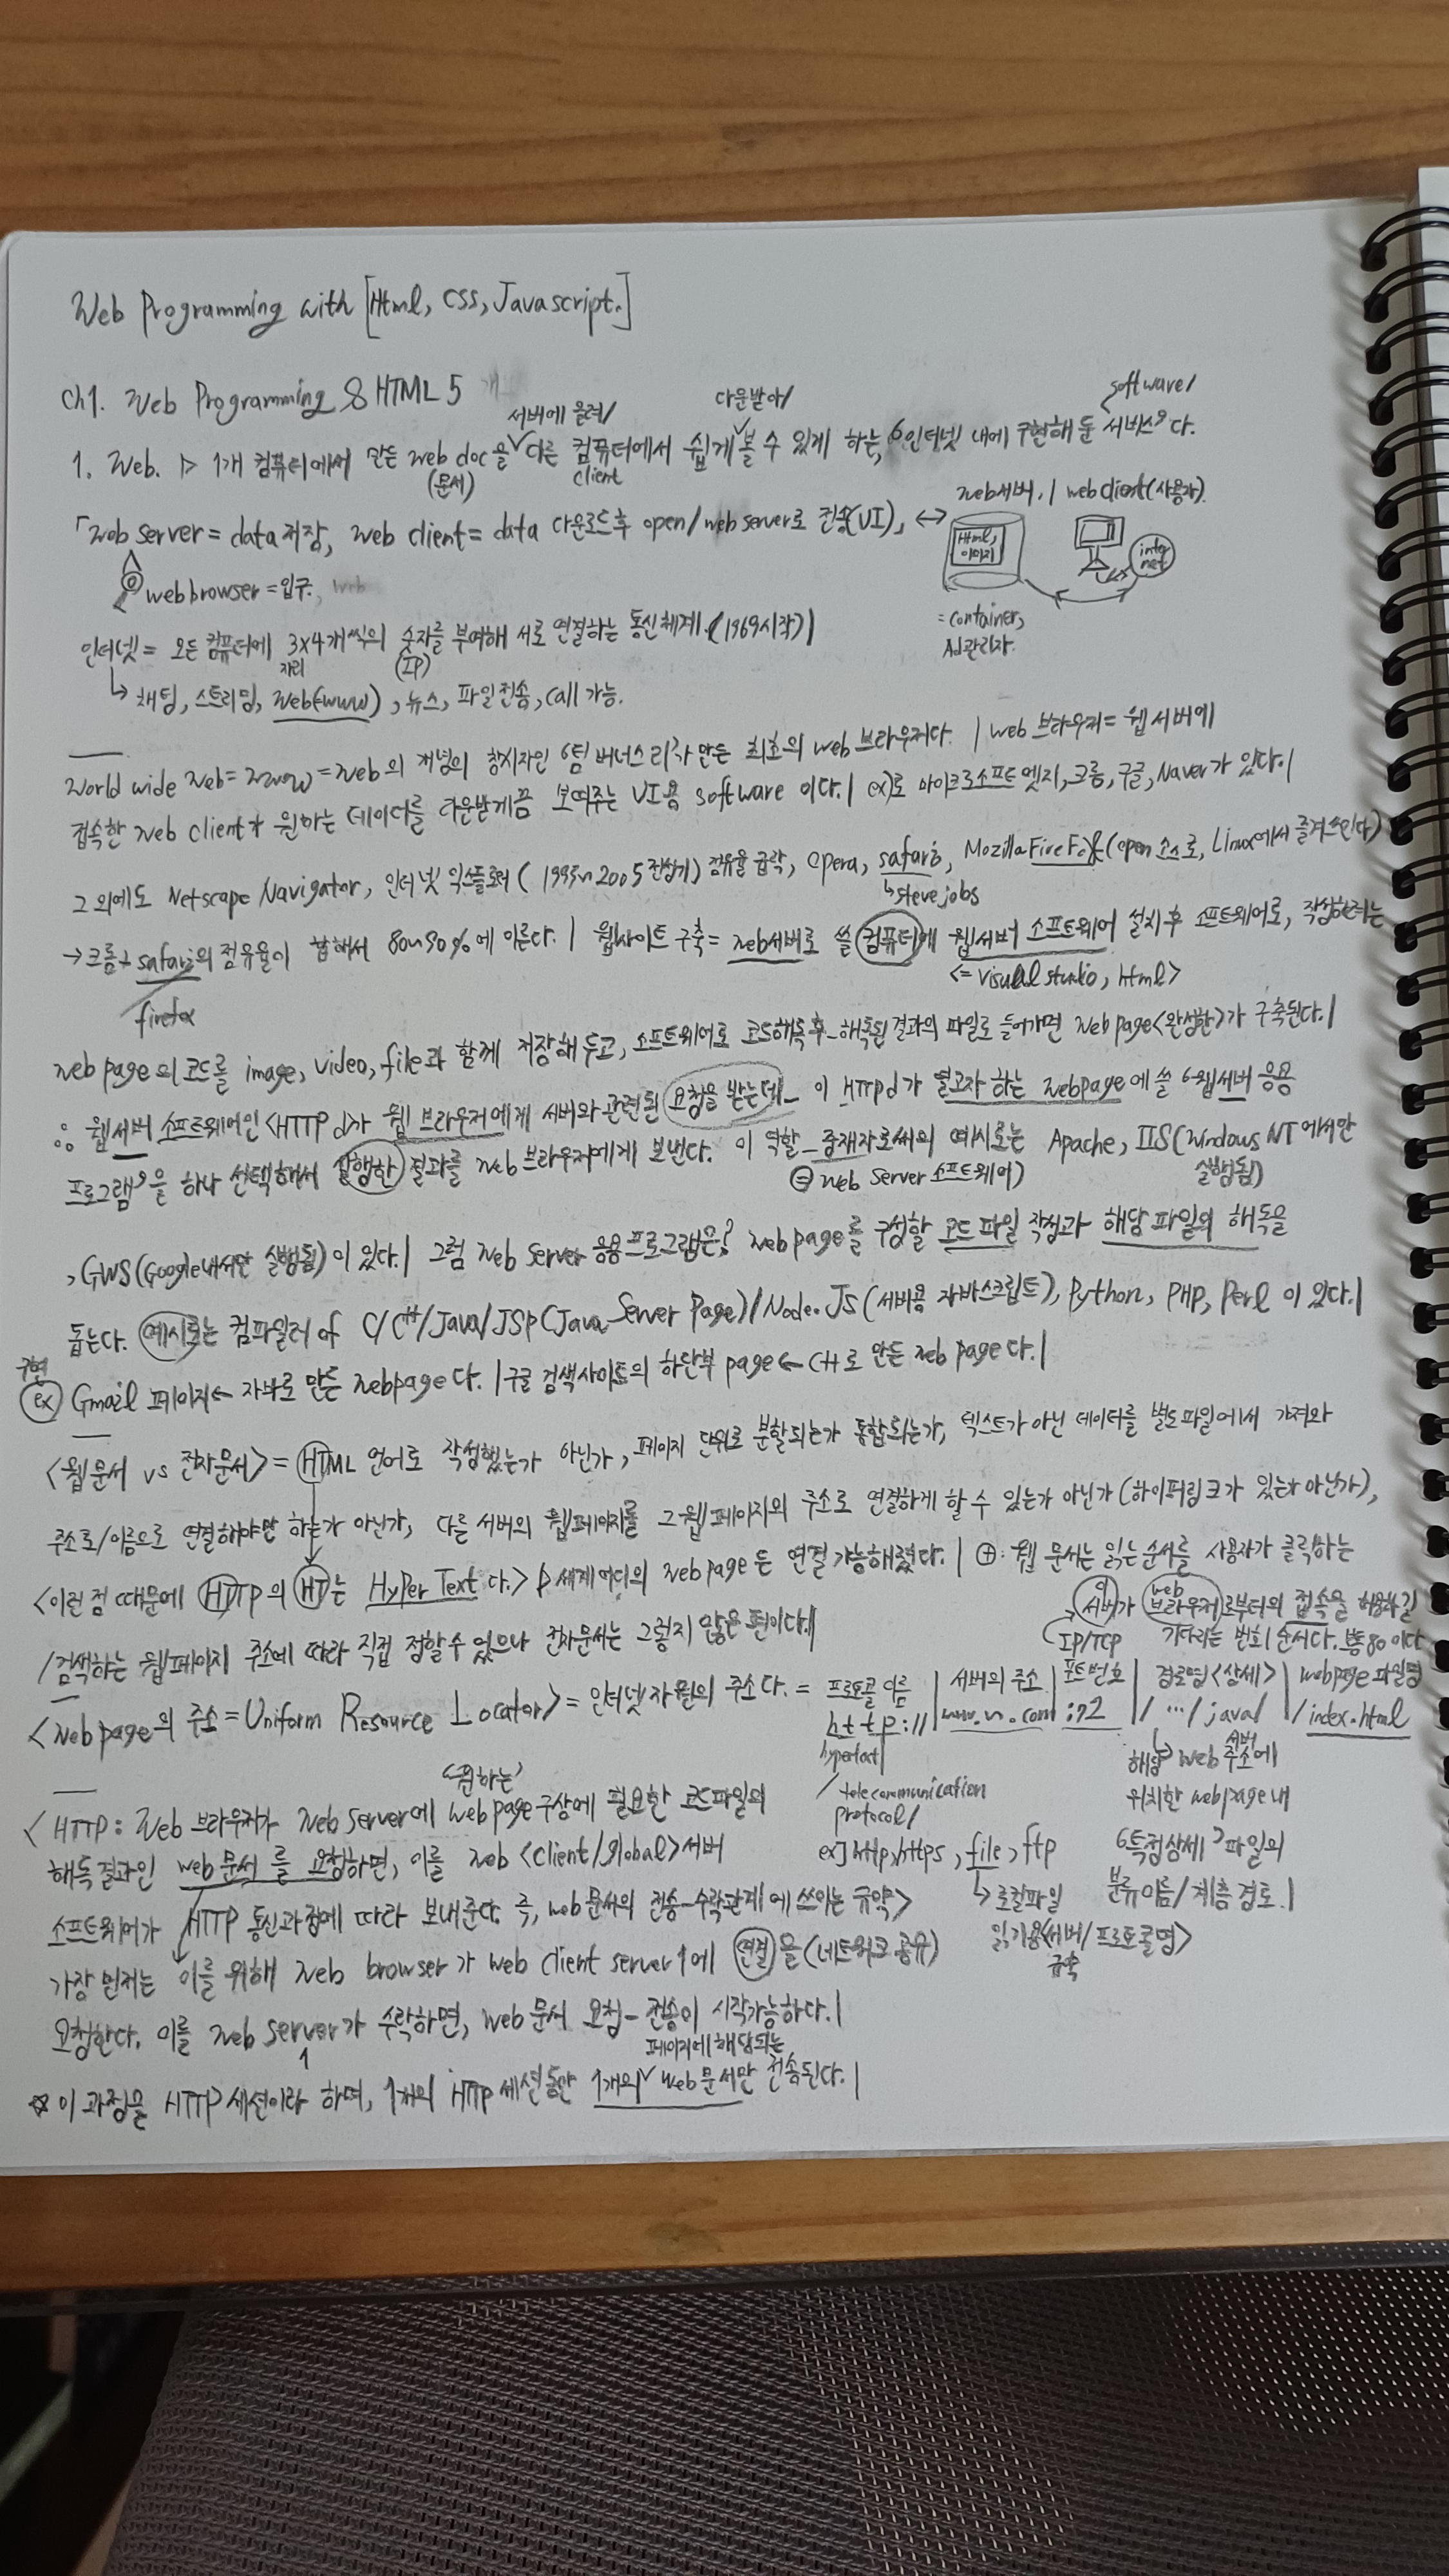 Web Programming with [Html, CSS, Javascript.]
Ch1. Web Programming & HTML 5
서버에 올려/ 다운받아/ software/
1. Web. ▷ 1개 컴퓨터에서 만든 web doc을 다른 컴퓨터에서 쉽게 볼 수 있게 하는, '인터넷 내에 구현해 둔 서비스'다.
(문서) client
「Web server = data 저장, web client = data 다운로드 후 open/web server로 전송(UI)」 ↔
web서버. | web client(사용자).
Html, 이미지
inter net
web browser = 입구.
= container, 관리자.
인터넷 = 모든 컴퓨터에 3x4개씩의 숫자를 부여해 서로 연결하는 통신체계. (1969시작)|
자리 (IP)
↳ 채팅, 스트리밍, web(www), 뉴스, 파일전송, call 가능.
World wide Web = www = web의 개념의 창시자인 '팀 버너스 리'가 만든 최초의 web 브라우저다. | web 브라우저 = 웹 서버에
접속한 web client가 원하는 데이터를 다운받게끔 보여주는 UI용 software 이다.| ex)로 마이크로소프트 엣지, 크롬, 구글, Naver가 있다.|
그 외에도 Netscape Navigator, 인터넷 익스플로러 (1995~2005 전성기) 점유율 급락, opera, safari, Mozilla FireFox(open 소스로, Linux에서 즐겨 쓰인다)
↳ steve jobs
→ 크롬 + safari의 점유율이 합해서 80~90%에 이른다. | 웹사이트 구축 = web서버로 쓸 컴퓨터에 웹서버 소프트웨어 설치 후 소프트웨어로, 작성하려는
firefox
<= visual studio, html>
web page의 코드를 image, video, file과 함께 저장해 두고, 소프트웨어로 코드해독 후 - 해독된 결과의 파일로 들어가면 web page<완성한>가 구축된다.|
∴ 웹서버 소프트웨어인 <HTTP d>가 웹 브라우저에게 서버와 관련된 요청을 받는데- 이 HTTP d가 열고자 하는 webpage에 쓸 '웹서버 응용
프로그램'을 하나 선택해서 실행한 결과를 web 브라우저에게 보낸다. 이 역할_중재자로써의 예시로는 Apache, IIS(Windows NT 에서만
= web Server 소프트웨어) 실행됨)
, GWS(Google내서만 실행됨)이 있다.| 그럼 web server 응용프로그램은? web page를 구성할 코드 파일 작성과 해당 파일의 해독을
돕는다. 예시로는 컴파일러 of C/C++/Java/JSP(Java Server Page)/Node.JS(서버용 자바스크립트), Python, PHP, Perl 이 있다.|
구현
ex) Gmail 페이지 ← 자바로 만든 webpage다. | 구글 검색사이트의 하단부 page ← C++로 만든 web page다.|
<웹문서 vs 전자문서> = HTML 언어로 작성했는가 아닌가, 페이지 단위로 분할되는가 통합되는가, 텍스트가 아닌 데이터를 별도 파일에서 가져와
주소로/이름으로 연결해야만 하는가 아닌가, 다른 서버의 웹페이지를 그 웹페이지의 주소로 연결하게 할 수 있는가 아닌가(하이퍼링크가 있는가 아닌가),
<이런 점 때문에 HTTP의 HT는 Hyper Text 다.> 세계 어디의 web page 든 연결 가능해졌다. | ⊕: 웹 문서는 읽는 순서를 사용자가 클릭하는
/검색하는 웹페이지 주소에 따라 직접 정할 수 있으나 전자문서는 그렇지 않은 편이다.|
이 서버가 web 브라우저로부터의 접속을 허용하길
IP/TCP 기다리는 번호/순서다. 보통 80 이다
<Web page의 주소 = Uniform Resource Locator> = 인터넷 자원의 주소다. = 프로토콜 이름 | 서버의 주소 | 포트번호 | 경로명<상세> | webpage 파일명
http:// | www.n.com | :72 | /.../java/ | /index.html
hypertext
/telecommunication
protocol/
해당 web 서버 주소에
위치한 webpage 내
'특정상세' 파일의
분류이름/계층 경로.|
ex] http, https, file, ftp
↳ 로컬파일
읽기용<서버/프로토콜명>
'원하는'
<HTTP: Web 브라우저가 web server에 web page 구상에 필요한 코드파일의
해독결과인 web 문서를 요청하면, 이를 web <client/global>서버
소프트웨어가 HTTP 통신과정에 따라 보내준다. 즉, web 문서의 전송-수락관계에 쓰이는 규약>
가장 먼저는 이를 위해 web browser가 web client server 1에 연결을(네트워크 공유)
요청한다. 이를 web server가 수락하면, web 문서 요청-전송이 시작가능하다.|
1 페이지에 해당되는
☆ 이 과정을 HTTP 세션이라 하며, 1개의 HTTP 세션동안 1개의 web 문서만 전송된다.|